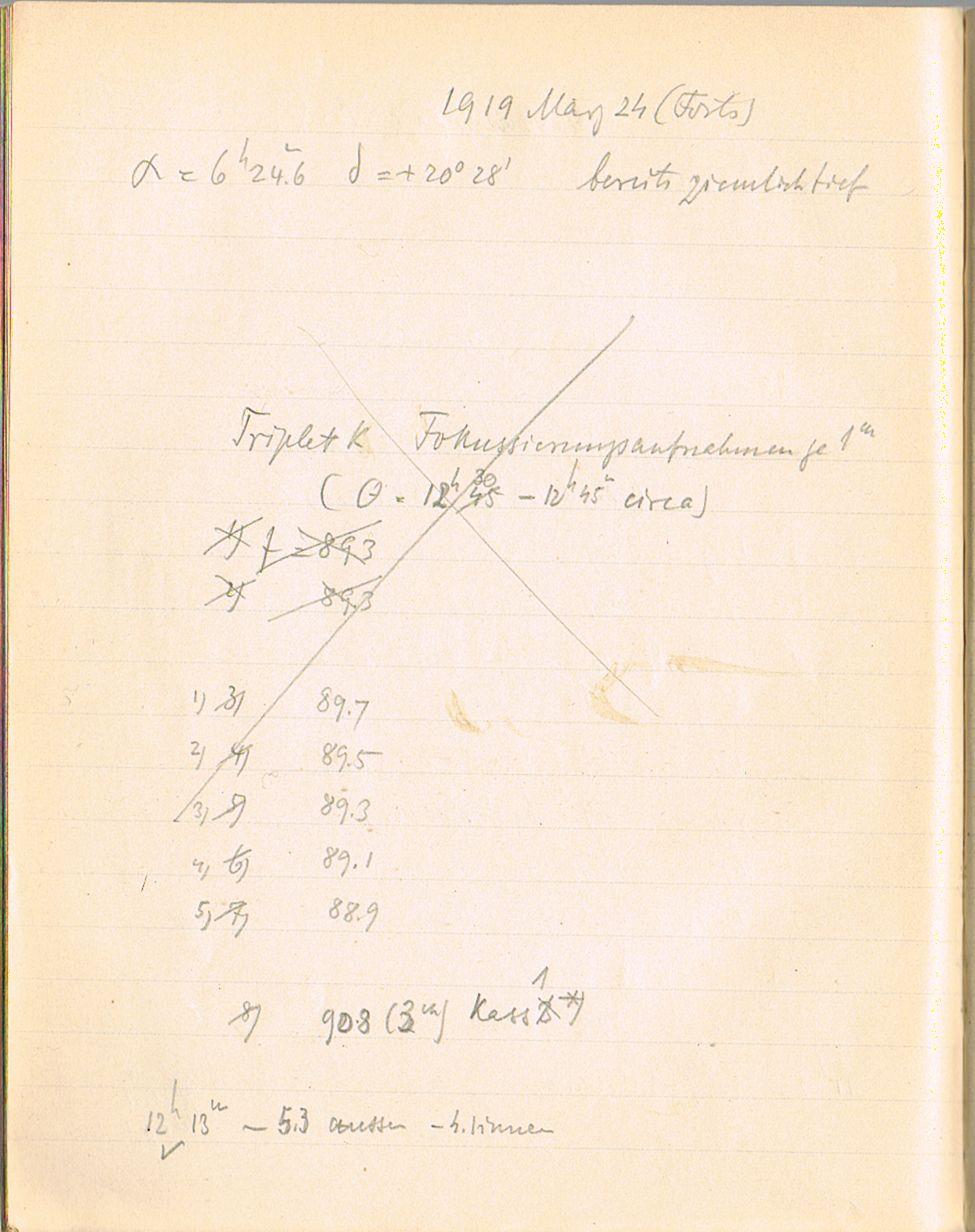 1919 März 24 (Forts)
α = 6h 24m.6 δ = +20° 28' bereits ziemlich tief
Triplet K Fokussierungsaufnahmen je 1m
(θ = 12h 30 45 – 12h 45m circa)
1) f = 89,3
2) 89,3
1) 3) 89.7
2) 4) 89.5
3) 5) 89.3
4) 6) 89.1
5) 7) 88.9
8) 90.8 (3m) Kass 1 *)
12h 13m – 5.3 aussen innen